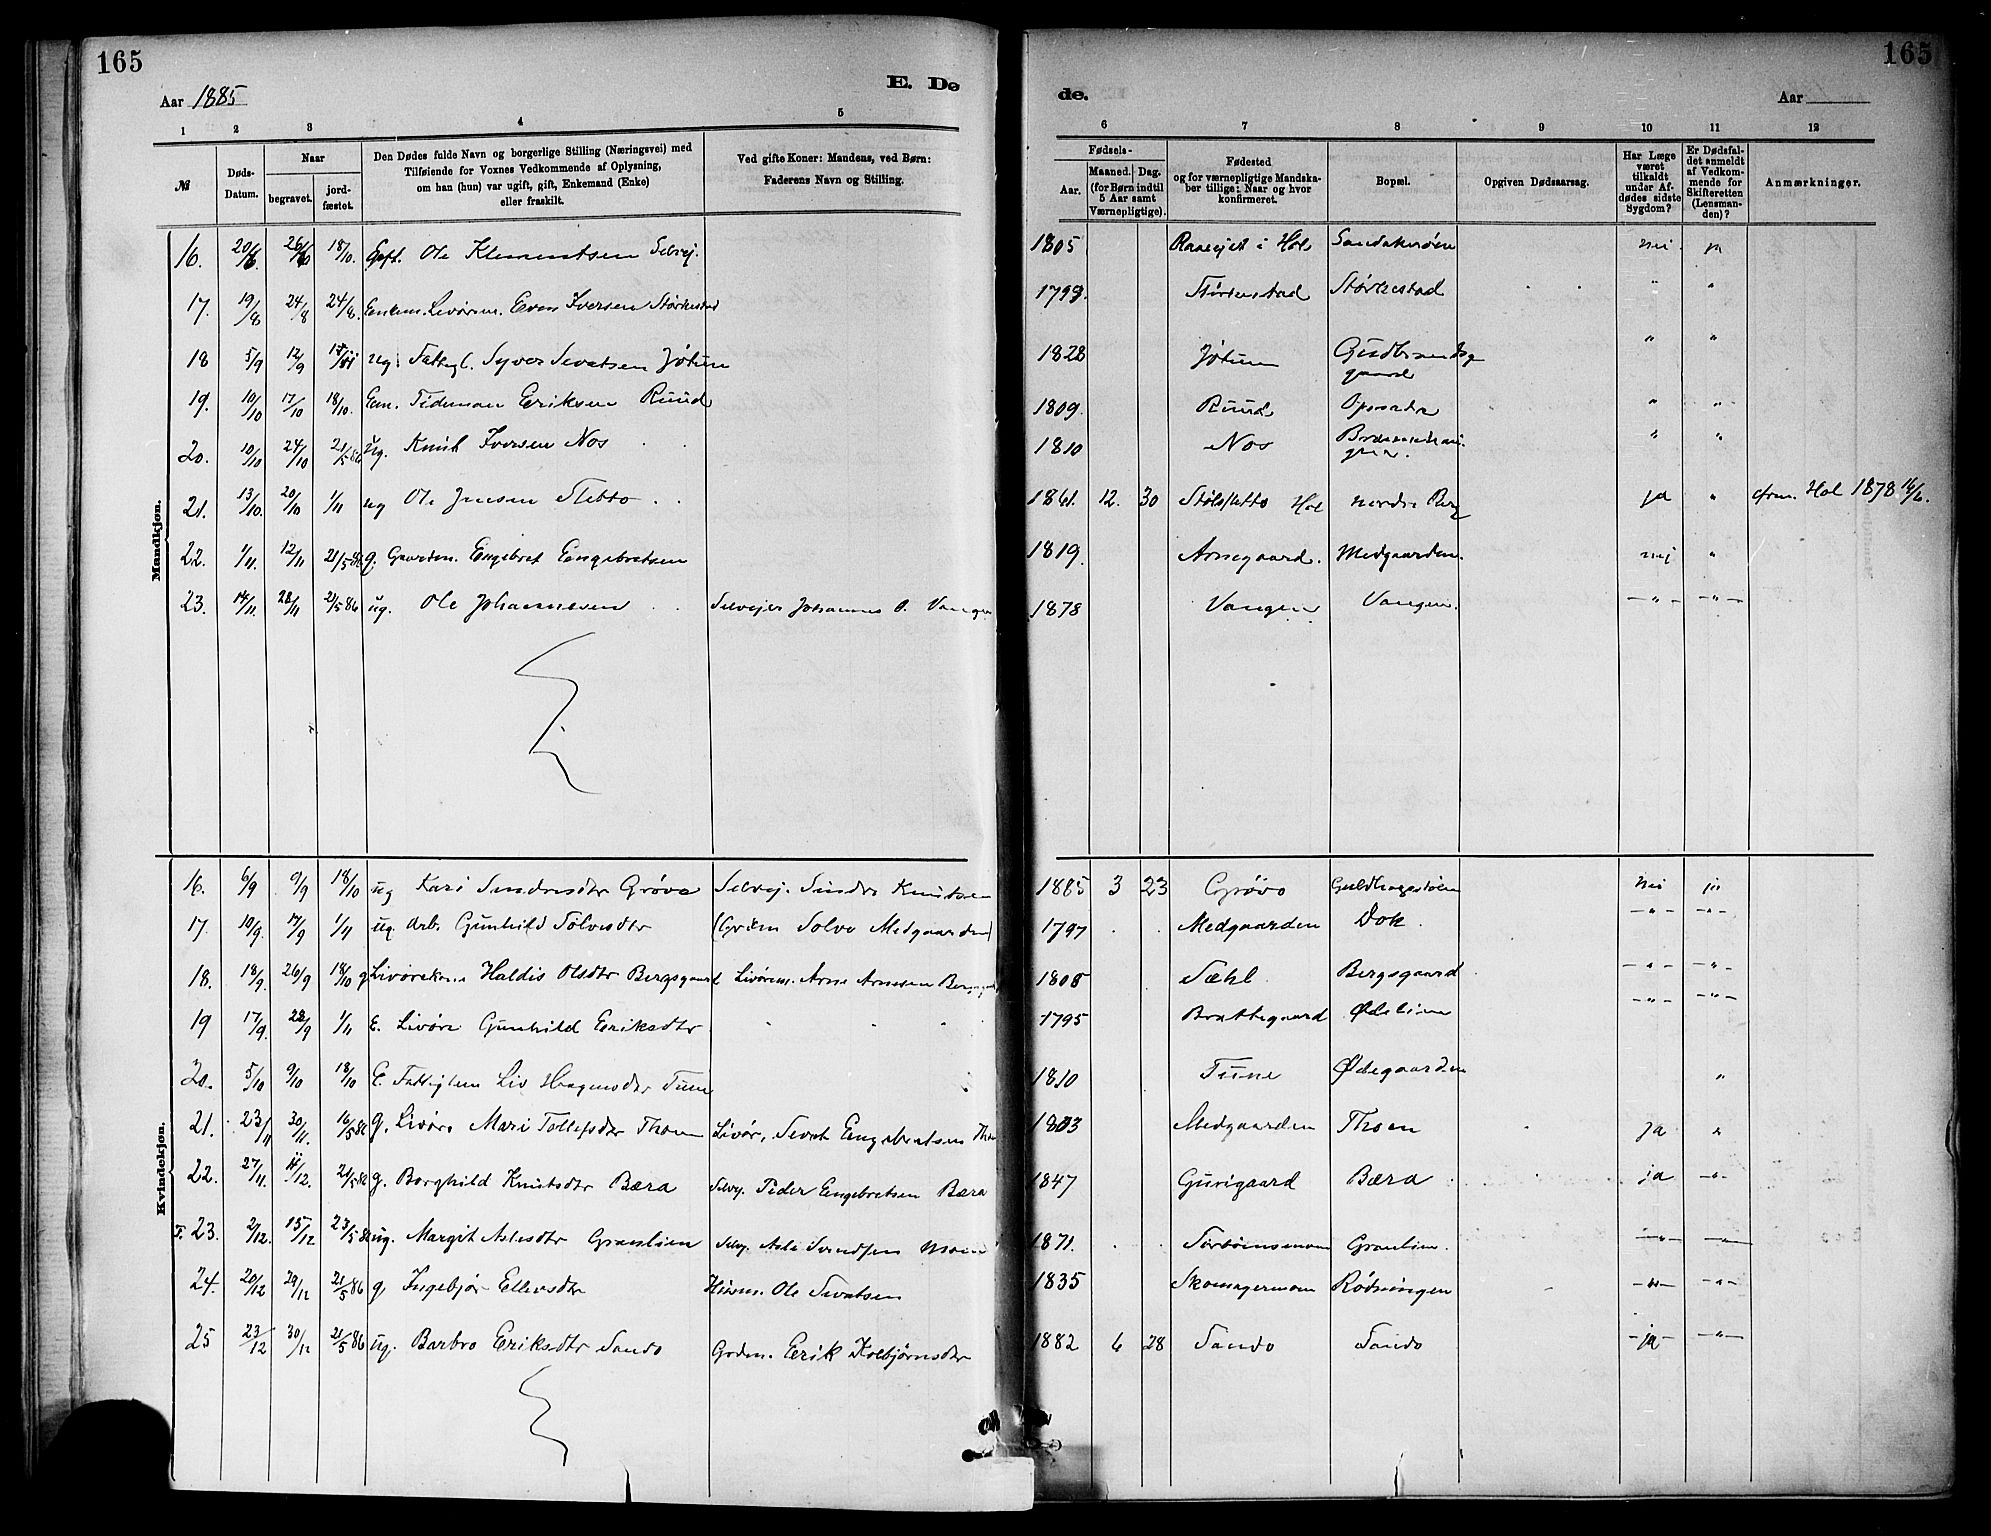 165
165
Aar 1885
E. Dø
de.
Aar
1 2 3 4 5
6 7 8 9 10 11 12
№
Døds-Datum.
Naar
begravet.
jord-fæstet.
Den Dødes fulde Navn og borgerlige Stilling (Næringsvei) med
Tilføiende for Voxnes Vedkommende af Oplysning,
om han (hun) var ugift, gift, Enkemand (Enke)
eller fraskilt.
Ved gifte Koner: Mandens, ved Børn:
Faderens Navn og Stilling.
Fødsels-
Aar.
Maaned. Dag.
(for Børn indtil
5 Aar samt
Værnepligtige).
Fødested
og for værnepligtige Mandska-
ber tillige: Naar og hvor
konfirmeret.
Bopæl.
Opgiven Dødsaarsag.
Har Læge
været
tilkaldt
under Af-
dødes sidste
Sygdom?
Er Dødsfal-
det anmeldt
af Vedkom-
mende for
Skifteretten
(Lensman-
den)?
Anmærkninger.
Mandkjøn.
16. 20/6. 18/10. Ole Klementsen Selvej. 1805 i Hol nei ja
17. 19/8 24/8 24/8. Enkem. Livørm. Even Iversen Størkestad 1799. Størkestad Størkestad " "
18 5/9 12/9 ug. Fattigl. Syver Sevatsen Jøtun 1828 Jøtun Gudbrandsgaard " "
19. 10/10 17/10 18/10. Em. Tideman Eriksen Ruud 1809. Ruud Opsata " "
20. 10/10 24/10 21/5 86 ug. Knut Iversen Nos 1810 Nos " "
21. 13/10. 20/10 1/11 ug Ole Jensen Sletto 1861. 12. 30 Hol nordre Berg ja " Hol 1878 16/6.
22. 1/11. 12/11 21/5 86 g. Gaardm. Engebret Engebretsen 1819. Arnegaard. Medgaarden. nej "
23. 14/11. 28/11 21/5 86 ug. Ole Johannesen Selvejer Johannes O. Vangen 1878 Vangen Vangen. -"- -"-
Kvindekjøn.
16. 6/9 9/9 18/10 ug Kari Sindresdtr Grøvo Selvej. Sindre Knutsen 1885 3 23 Grøvo Guldhagestølen nei ja
17. 10/9. 17/9 1/11 ug. Arb. Gunhild Sølvesdtr (Grdm Solve Medgaarden) 1797 Medgaarden Dok. -"- -"-
18. 18/9. 26/9 18/10 g. Livørekone Haldis Olsdtr Bergsgaard Livørm. Arne Arnesen 1805 Sæhl Bergsgaard -"- -"-
19 17/9. 1/11 E. Livøre Gunhild Eriksdtr 1795 Brattegaard Ødelien -"- -"-
20. 5/10 9/10 18/10 E. Fattiglem Liv Hagensdtr Tune 1810 Tune Ødegaarden "
21. 23/11 30/11. 16/5 86 g. Livøre Mari Tollefsdtr Thoen Livør. Sevat Engebretsen Thoen 1803 Medgaarden Thoen ja "
22. 27/11. 21/5 86 g. Borghild Knutsdtr Bæra Selvej. Peder Engebretsen Bæra 1847 Gurigaard Bæra ja -"-
23. 2/12. 15/12 23/5 86 ug. Margit Aslesdtr Granlien Selvej. Asle Svendsen 1871. Granlien. -"- -"-
24. 20/12 29/12 21/5 86 g. Ingebjør Ellevsdtr Husm. Ole Sevatsen 1835 Skomagermoen Rødningen -"- -"-
25 23/12 30/12 21/5 86 ug. Barbro Eriksdtr Sando Grdm. Erik Kolbjørnsdtr 1882 6 28 Sando Sando -ja- -"-